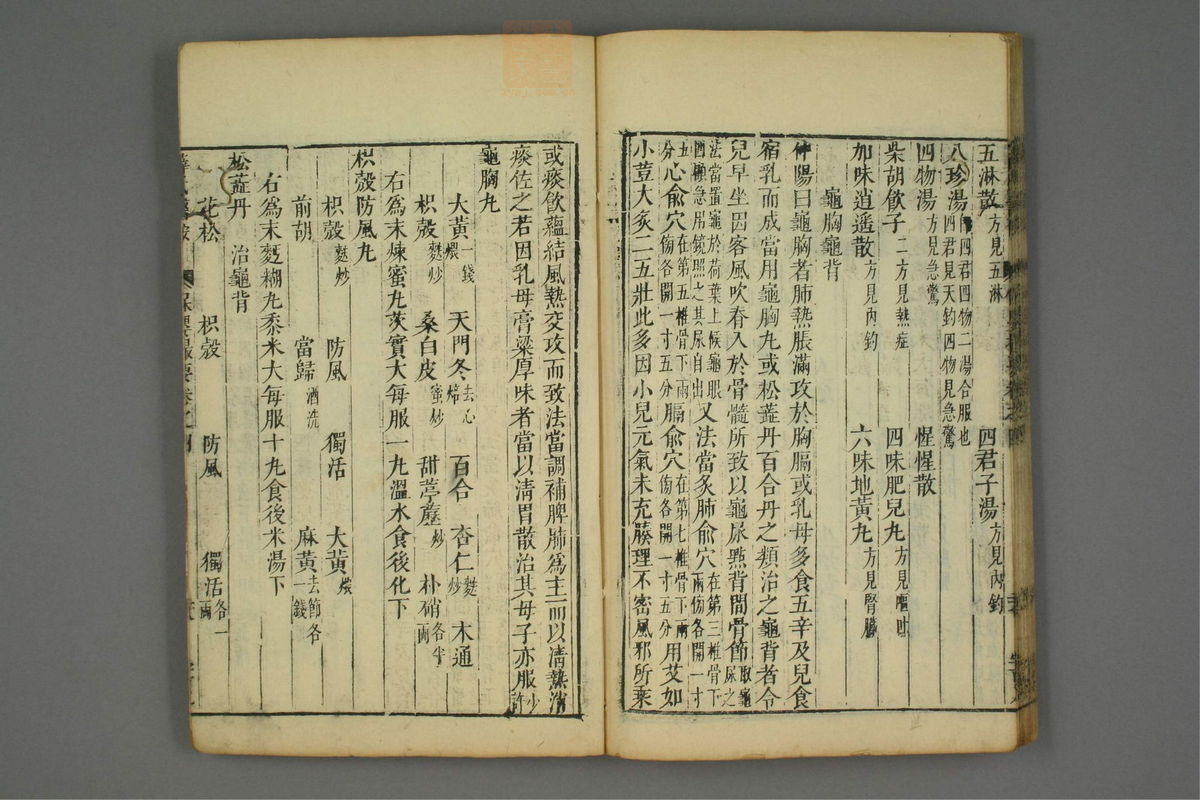 五淋散方見五淋　四君子湯方見內釣
八珍湯即四君四物二湯合服也四君見天釣四物見急驚
四物湯方見急驚　惺惺散
柴胡飲子二方見熱症　四味肥兒丸方見嘔吐
加味逍遙散方見內釣　六味地黃丸方見腎臟
龜胸龜背
仲陽曰龜胸者肺熱脹滿攻於胸膈或乳母多食五辛及兒食
宿乳而成當用龜胸丸或松蘂丹百合丹之類治之龜背者令
兒早坐因客風吹脊入於骨髓所致以龜尿㸃背間骨節取龜尿之
法當置龜於荷葉上候龜眼四顧急用鏡照之其尿自出又法當灸肺俞穴在第三椎骨下兩傍各開一寸
五分心俞穴在第五椎骨下兩傍各開一寸五分膈俞穴在第七椎骨下兩傍各開一寸五分用艾如
小荳大灸二五壯此多因小兒元氣未充腠理不密風邪所乘
或痰飲蘊結風熱交攻而致法當調補脾肺爲主而以清熱消
痰佐之若因乳母膏粱厚味者當以清胃散治其母子亦服少許
龜胸丸
大黃煨一錢　天門冬去心焙　百合　杏仁麩炒　木通
枳殼麩炒　桑白皮蜜炒　甜葶藶炒　朴硝各半兩
右爲末煉蜜丸芡實大每服一丸溫水食後化下
枳殼防風丸
枳殼麩炒　防風　獨活　大黃煨
前胡　當歸酒洗　麻黃去節各一錢
右爲末麪糊丸黍米大每服十丸食後米湯下
松蘂丹　治龜背
花松　枳殼　防風　獨活各一兩
保嬰撮要卷之四